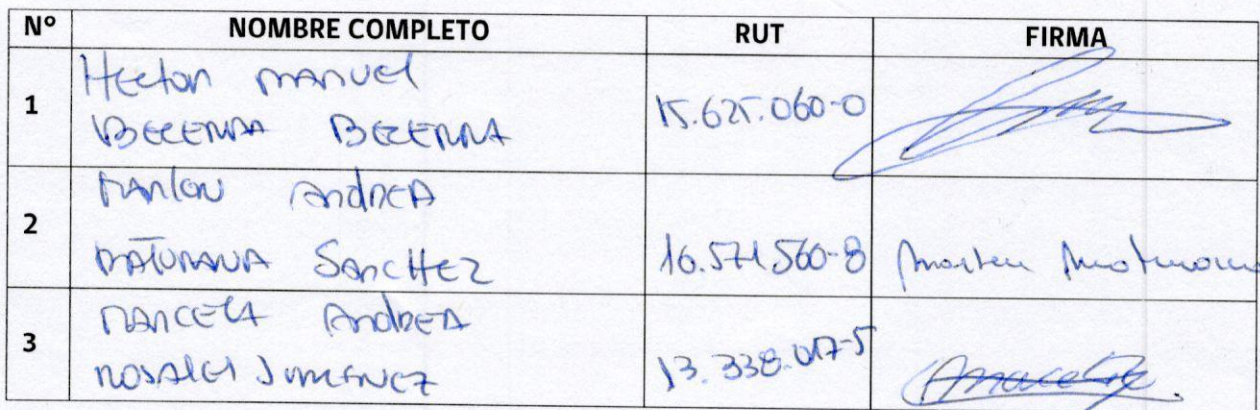 Nº NOMBRE COMPLETO RUT FIRMA
1 Hector Manuel
Becerra Becerra 15.625.060-0
2 Marlen Andrea
Maturana Sanchez 16.571.560-8 Marlen Maturana
3 Marcela Andrea
Rosales Jimenez 13.338.017-5 Marcela